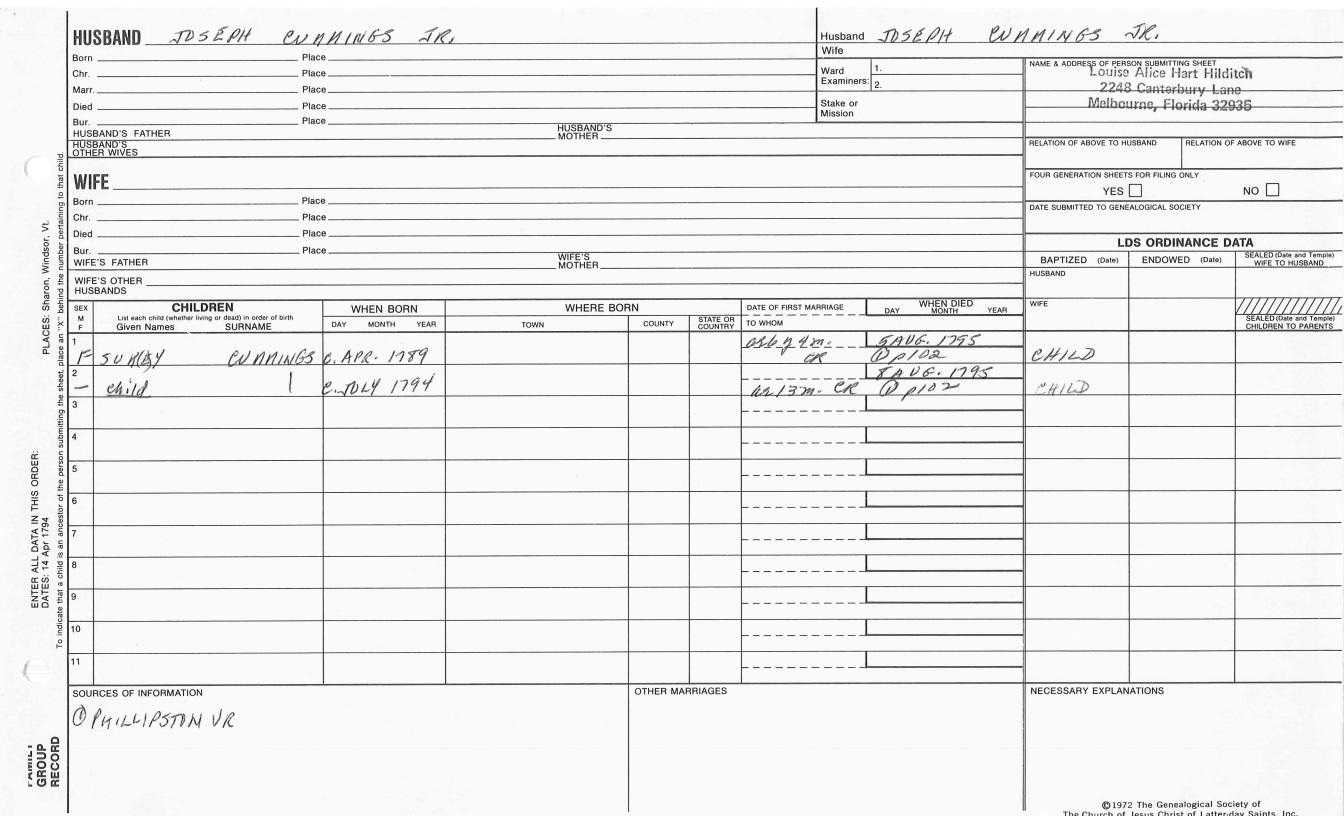 HUSBAND JOSEPH CUMMINGS JR.
Born Place
Chr. Place
Marr. Place
Died Place
Bur. Place
HUSBAND'S FATHER HUSBAND'S MOTHER
HUSBAND'S OTHER WIVES
WIFE
Born Place
Chr. Place
Died Place
Bur. Place
WIFE'S FATHER WIFE'S MOTHER
WIFE'S OTHER HUSBANDS
Husband JOSEPH CUMMINGS JR.
Wife
Ward Examiners: 1.
2.
Stake or Mission
NAME & ADDRESS OF PERSON SUBMITTING SHEET
Louise Alice Hart Hilditch
2248 Canterbury Lane
Melbourne, Florida 32935
RELATION OF ABOVE TO HUSBAND RELATION OF ABOVE TO WIFE
FOUR GENERATION SHEETS FOR FILING ONLY
YES NO
DATE SUBMITTED TO GENEALOGICAL SOCIETY
LDS ORDINANCE DATA
BAPTIZED (Date) ENDOWED (Date) SEALED (Date and Temple) WIFE TO HUSBAND
HUSBAND
WIFE
SEALED (Date and Temple) CHILDREN TO PARENTS
SEX M F
CHILDREN
List each child (whether living or dead) in order of birth
Given Names SURNAME
WHEN BORN
DAY MONTH YEAR
WHERE BORN
TOWN COUNTY STATE OR COUNTRY
DATE OF FIRST MARRIAGE
TO WHOM
WHEN DIED
DAY MONTH YEAR
1 5 AUG. 1795
F CUMMINGS c. APR. 1789 CR ① p102 CHILD
2 8 AUG. 1795
— child c. JULY 1794 13m. CR ① p102 CHILD
3
4
5
6
7
8
9
10
11
SOURCES OF INFORMATION
① PHILLIPSTON VR
OTHER MARRIAGES
NECESSARY EXPLANATIONS
©1972 The Genealogical Society of
The Church of Jesus Christ of Latter-day Saints, Inc.
PLACES: Sharon, Windsor, Vt.
ENTER ALL DATA IN THIS ORDER:
DATES: 14 Apr 1794
To indicate that a child is an ancestor of the person submitting the sheet, place an "X" behind the number pertaining to that child.
FAMILY
GROUP
RECORD